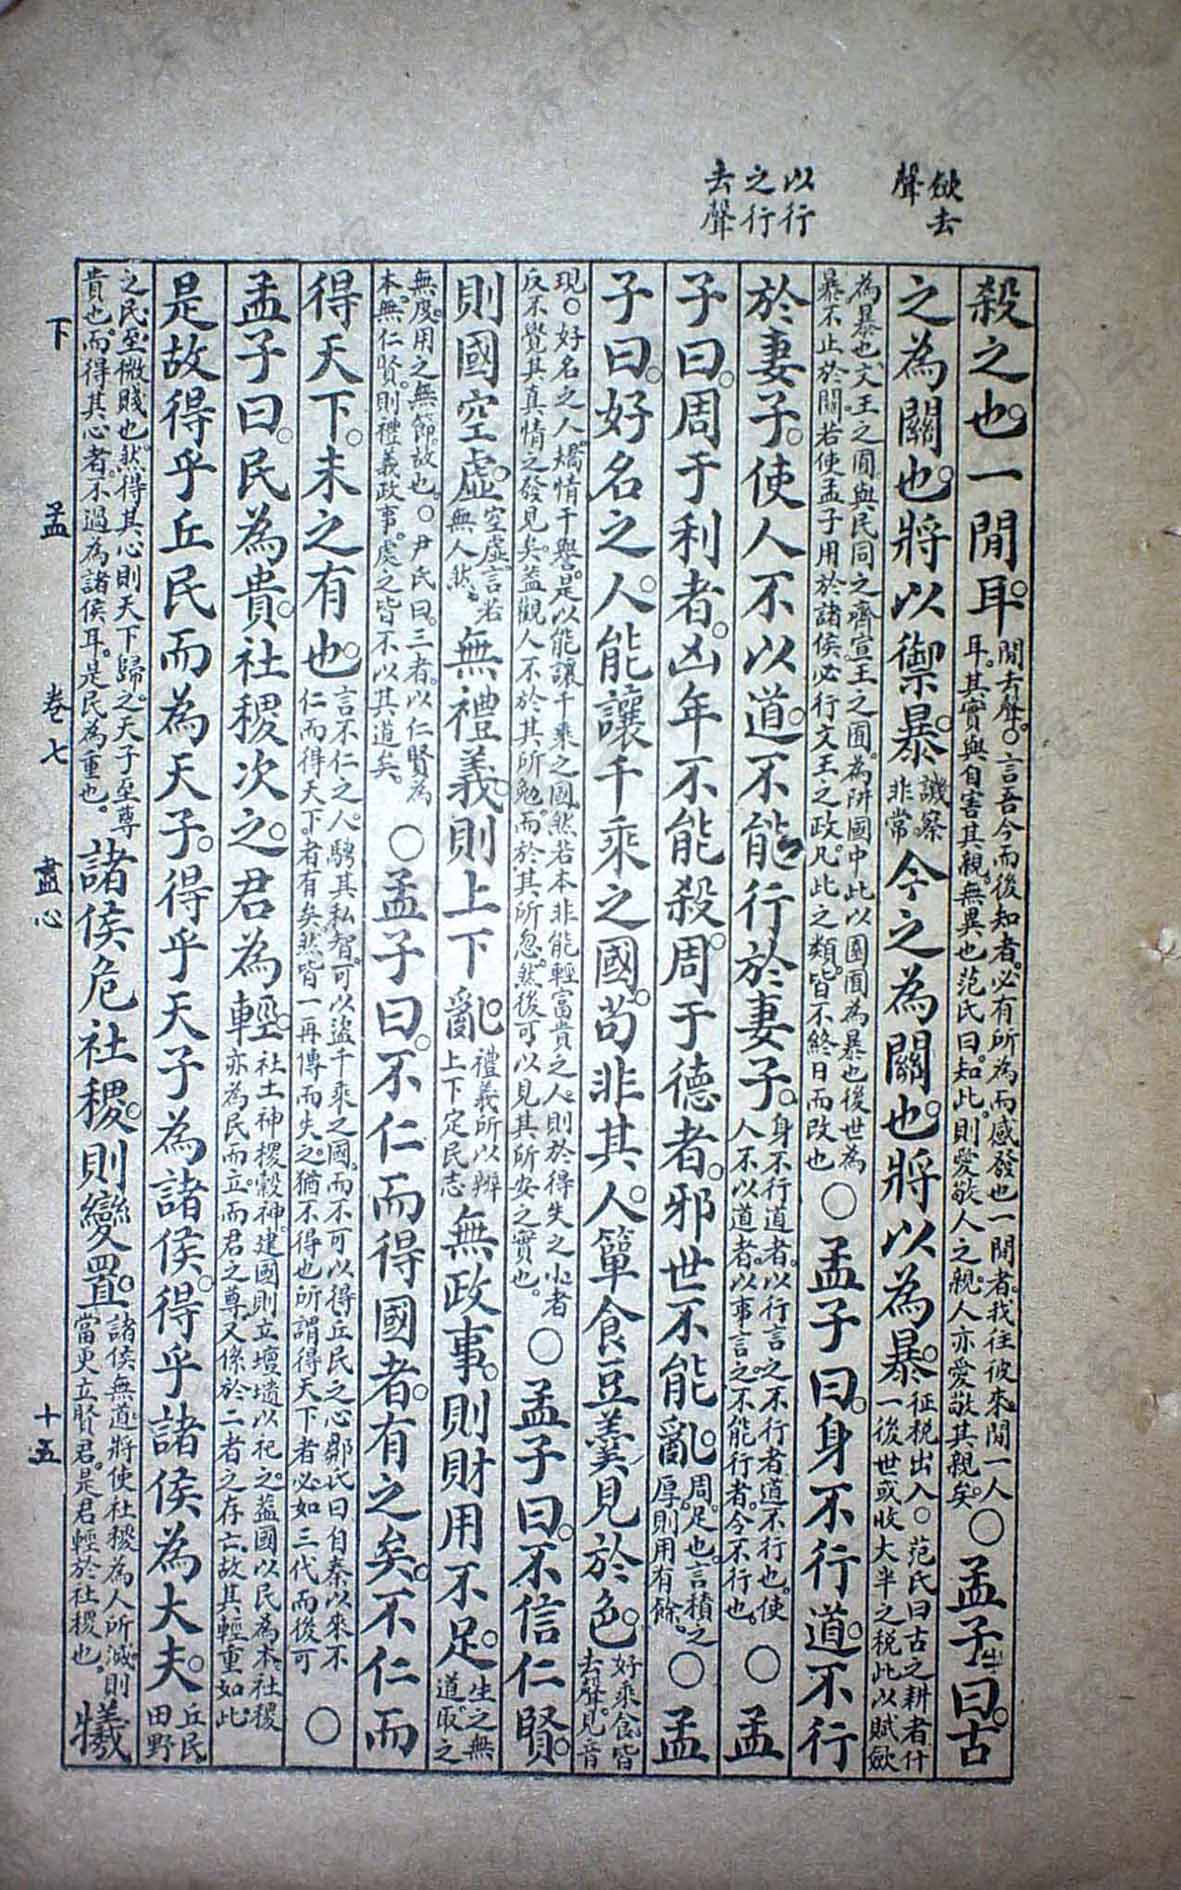 歛去
聲
以行
之行
去聲
殺之也。一閒耳。閒去聲。○言吾今而後知者。必有所為而感發也一閒者。我往彼來。閒一人耳。其實與自害其親。無異也范氏曰。知此。則愛敬人之親。人亦愛敬其親矣。○孟子曰。古
之為關也。將以禦暴。譏察非常。今之為關也。將以為暴。征稅出入。○范氏曰古之耕者什一後世或收大半之稅此以賦歛
為暴也文王之囿。與民同之齊宣王之囿。為阱國中此以園囿為暴也後世為暴不止於關。若使孟子用於諸侯必行文王之政。凡此之類。皆不終日而改也○孟子曰。身不行道。不行
於妻子。使人不以道。不能行於妻子。身不行道者。以行言之不行者道不行也。使人不以道者。以事言之不能行者。令不行也。○孟
子曰。周于利者。凶年不能殺。周于德者。邪世不能亂。周。足也。言積之厚。則用有餘。○孟
子曰。好名之人。能讓千乘之國。苟非其人。簞食豆羹見於色。好乘食皆去聲。見音
現。○好名之人。矯情干譽。是以能讓千乘之國。然若本非能輕富貴之人。則於得失之小者反不覺其真情之發見矣。葢觀人不於其所勉。而於其所忽。然後可以見其所安之實也。○孟子曰。不信仁賢。
則國空虛。空虛言若無人然。無禮義。則上下亂。禮義所以辨上下定民志無政事。則財用不足。生之無道。取之
無度。用之無節。故也。○尹氏曰。三者。以仁賢為本。無仁賢。則禮義政事。處之皆不以其道矣。○孟子曰。不仁而得國者。有之矣。不仁而
得天下。未之有也。言不仁之人。騁其私智。可以盜千乘之國。而不可以得丘民之心鄒氏曰自秦以來不仁而得天下。者有矣然皆一再傳而失之。猶不得也所謂得天下者必如三代而後可○
孟子曰。民為貴。社稷次之。君為輕。社土神稷穀神。建國則立壇壝以祀之。葢國以民為本。社稷亦為民而立。而君之尊。又係於二者之存亡。故其輕重如此。
是故得乎丘民而為天子。得乎天子為諸侯。得乎諸侯為大夫。丘民田野
之民。至微賤也。然得其心則天下歸之。天子至尊貴也。而得其心者。不過為諸侯耳。是民為重也。諸侯危社稷。則變置。諸侯無道。將使社稷為人所滅。則當更立賢君。是君輕於社稷也。犧
下 孟 卷七 盡心 十五